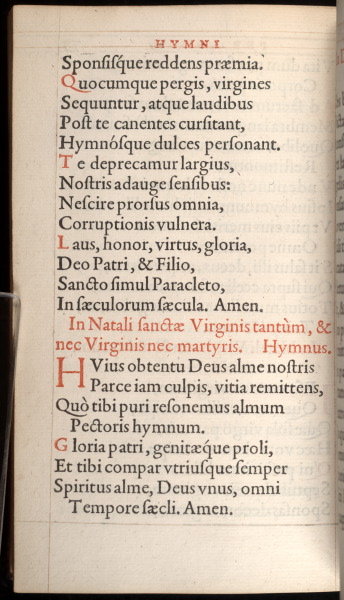 HYMNI
Sponsisque reddens præmia.
Quocumque pergis, virgines
Sequuntur, atque laudibus
Post te canentes cursitant,
Hymnósque dulces personant.
Te deprecamur largius,
Nostris adauge sensibus:
Nescire prorsus omnia,
Corruptionis vulnera.
Laus, honor, virtus, gloria,
Deo Patri, & Filio,
Sancto simul Paracleto,
In sæculorum sæcula. Amen.
In Natali sanctæ Virginis tantùm, &
nec Virginis nec martyris. Hymnus.
HVius obtentu Deus alme nostris
Parce iam culpis, vitia remittens,
Quò tibi puri resonemus almum
Pectoris hymnum.
Gloria patri, genitæque proli,
Et tibi compar vtriusque semper
Spiritus alme, Deus vnus, omni
Tempore sæcli. Amen.